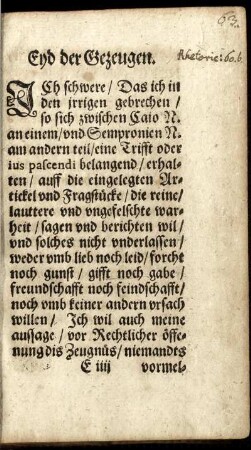 63.
Eyd der Gezeugen.
Rhetoric: 60. b.
ICh schwere / Das ich in
den jrrigen gebrechen /
so sich zwischen Caio N.
an einem / vnd Sempronien N.
am andern teil / eine Trifft oder
ius pascendi belangend / erhal-
ten / auff die eingelegten Ar-
tickel vnd Fragstücke / die reine /
lauttere vnd vngefelschte war-
heit / sagen vnd berichten wil /
vnd solches nicht vnderlassen /
weder vmb lieb noch leid / forcht
noch gunst / gifft noch gabe /
freundschafft noch feindschafft /
noch vmb keiner andern vrsach
willen / Ich wil auch meine
aussage / vor Rechtlicher öffe-
nung dis Zeugnüs / niemandts
E iiij vormel-